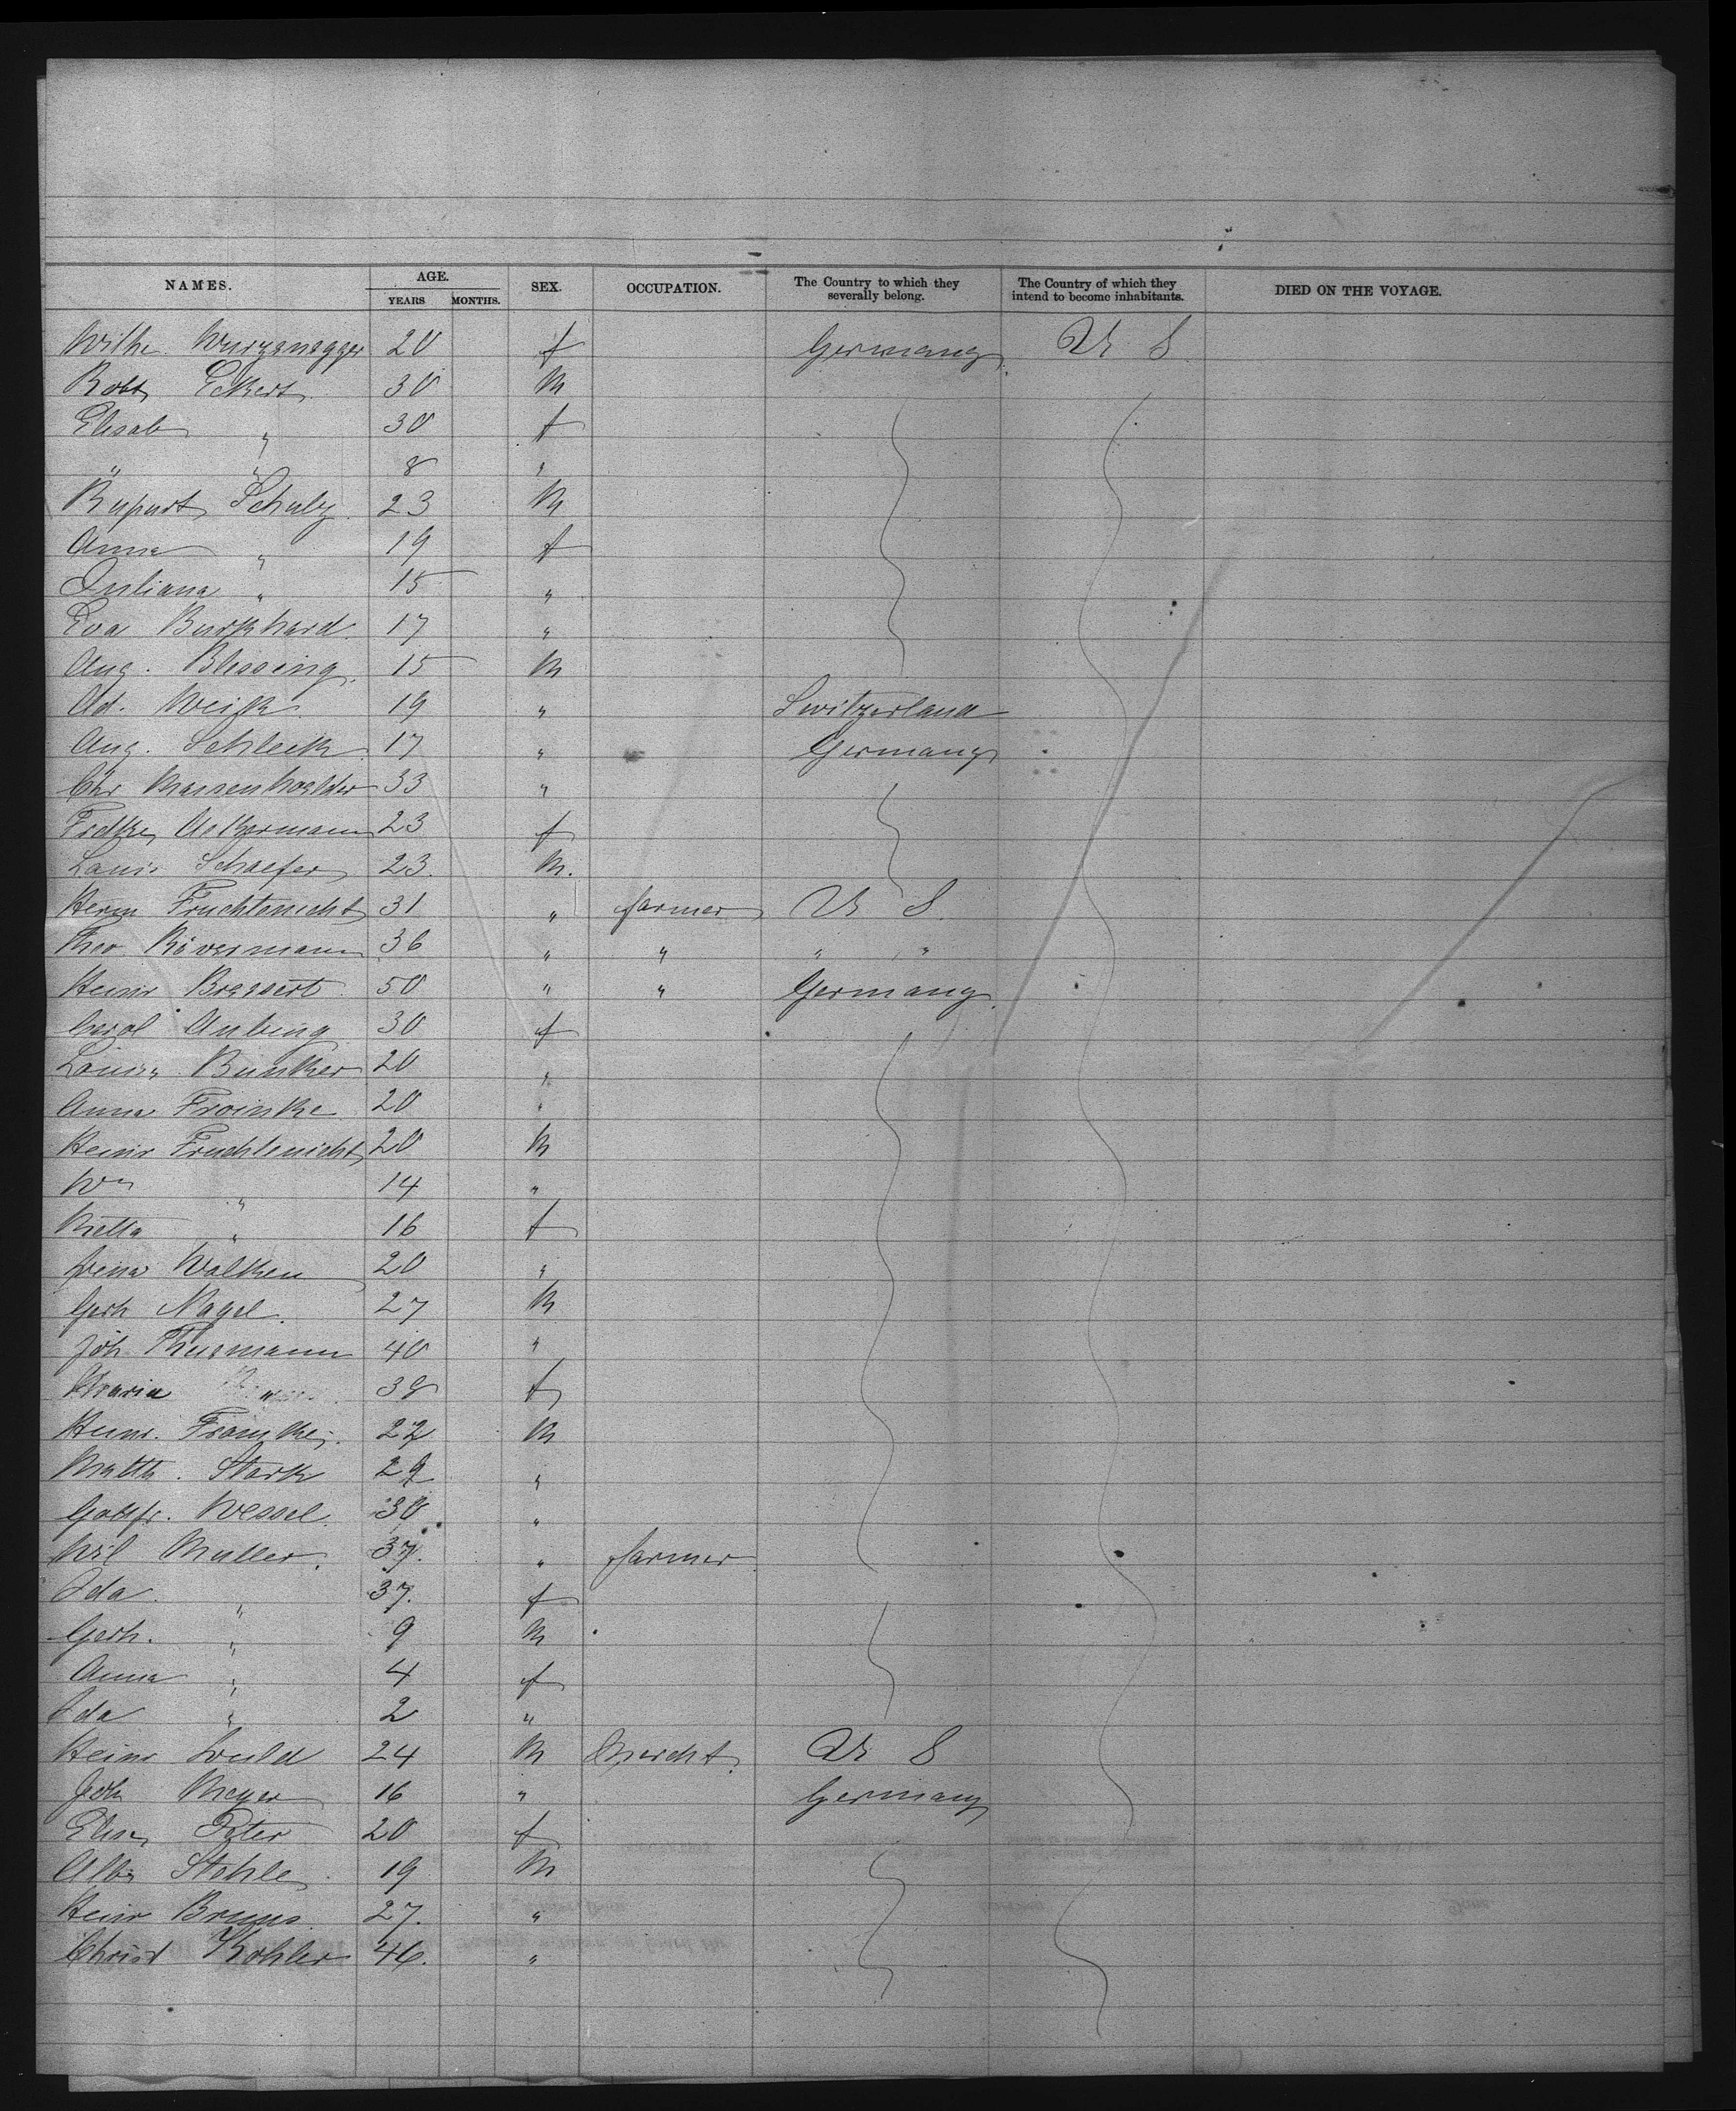 NAMES. AGE. SEX. OCCUPATION. The Country to which they severally belong. The Country of which they intend to become inhabitants. DIED ON THE VOYAGE.
YEARS MONTHS.
Wilhe. Wurzenegger 20 f Germany U S
Robt Eckert 30 M
Elisab " 30 f
" " 8 "
Rupert Schulz 23 M
Anna " 19 f
Juliana " 15 "
Eva Burkhard 17 "
Aug. Blessing 15 M
Ad. Weisk 19 " Switzerland
Aug. Schleck 17 " Germany
Chr 33 "
Fredke Ackermann 23 f
Louis Schaefer 23 M.
Herm Fruchtenicht 31 " farmer U S
Theo. Rövermann 36 " " " "
Heinr Brassert 50 " " Germany
Carol 30 f
Louisa Bunker 20 "
Anna Froinke 20 "
Heinr Fruchtenicht 20 M
Wm " 14 "
Metta " 16 f
Walken 20 "
Gerh Nagel 27 M
Joh Thusmann 40 "
Maria " 38 f
Heinr. Froinke 22 M
Matth. Stark 29 "
Gottfr. Wessel 30 "
Wil Muller. 37. " farmer
Ida. " 37. f
Gerh. " 9 M
Anna " 4 f
Ida " 2 "
Heinr 24 M U S
Joh Meyer 16 " Germany
Elisa Peter 20 f
Albr Stohle 19 M
Heinr Bruns 27. "
Christ Kohler 46. "